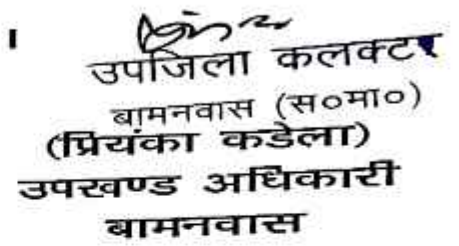 ।
उपजिला कलक्टर
बामनवास (स०मा०)
(प्रियंका कडेला)
उपखण्ड अधिकारी
बामनवास